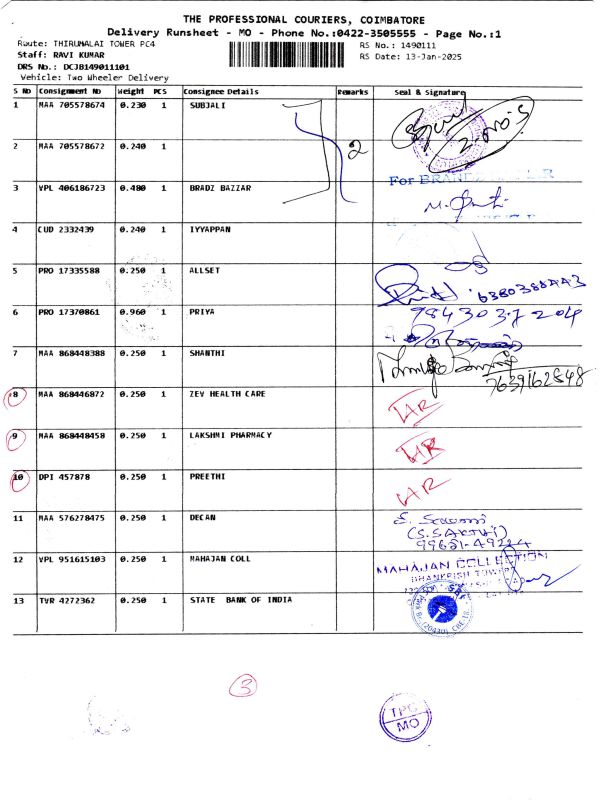 THE PROFESSIONAL COURIERS, COIMBATORE
Delivery Runsheet - MO - Phone No.:0422-3505555 - Page No.:1
Route: THIRUMALAI TOWER PC4
RS No.: 1490111
Staff: RAVI KUMAR
RS Date: 13-Jan-2025
DRS No.: DCJB149011101
Vehicle: Two Wheeler Delivery
S No Consignment No Weight PCS Consignee Details Remarks Seal & Signature
1 MAA 705578674 0.230 1 SUBJALI
2 NO.S
2 MAA 705578672 0.240 1 2
For BRANDZ
3 VPL 406186723 0.480 1 BRADZ BAZZAR
4 CUD 2332439 0.240 1 IYYAPPAN
5 PRO 17335588 0.250 1 ALLSET
6 PRO 17370861 0.960 1 PRIYA 9843037204
7 MAA 868448388 0.250 1 SHANTHI
7639162848
8 MAA 868446872 0.250 1 ZEV HEALTH CARE
9 MAA 868448458 0.250 1 LAKSHMI PHARMACY
10 DPI 457878 0.250 1 PREETHI
11 MAA 576278475 0.250 1 DECAN
(S.SAKTHI)
99651-49224
12 VPL 951615103 0.250 1 MAHAJAN COLL MAHAJAN COLLECTION
13 TVR 4272362 0.250 1 STATE BANK OF INDIA
3
TPC
MO